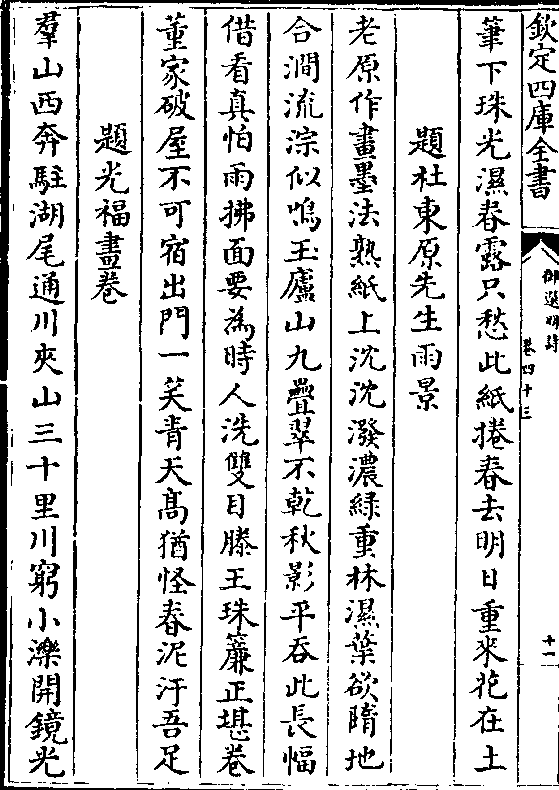 欽定四庫全書
御選明詩
卷四十三
十一
筆下珠光濕春露只愁此紙捲春去明日重來花在土
題杜東原先生雨景
老原作畫墨法熟紙上沈沈潑濃綠重林濕葉欲隋地
合澗流淙似鳴玉廬山九疊翠不乾秋影平吞此長幅
借看真怕雨拂面要為時人洗雙目滕王珠簾正堪卷
董家破屋不可宿出門一笑青天高猶怪春泥汙吾足
題光福畫卷
羣山西奔駐湖尾通川夾山三十里川窮小濼開鏡光